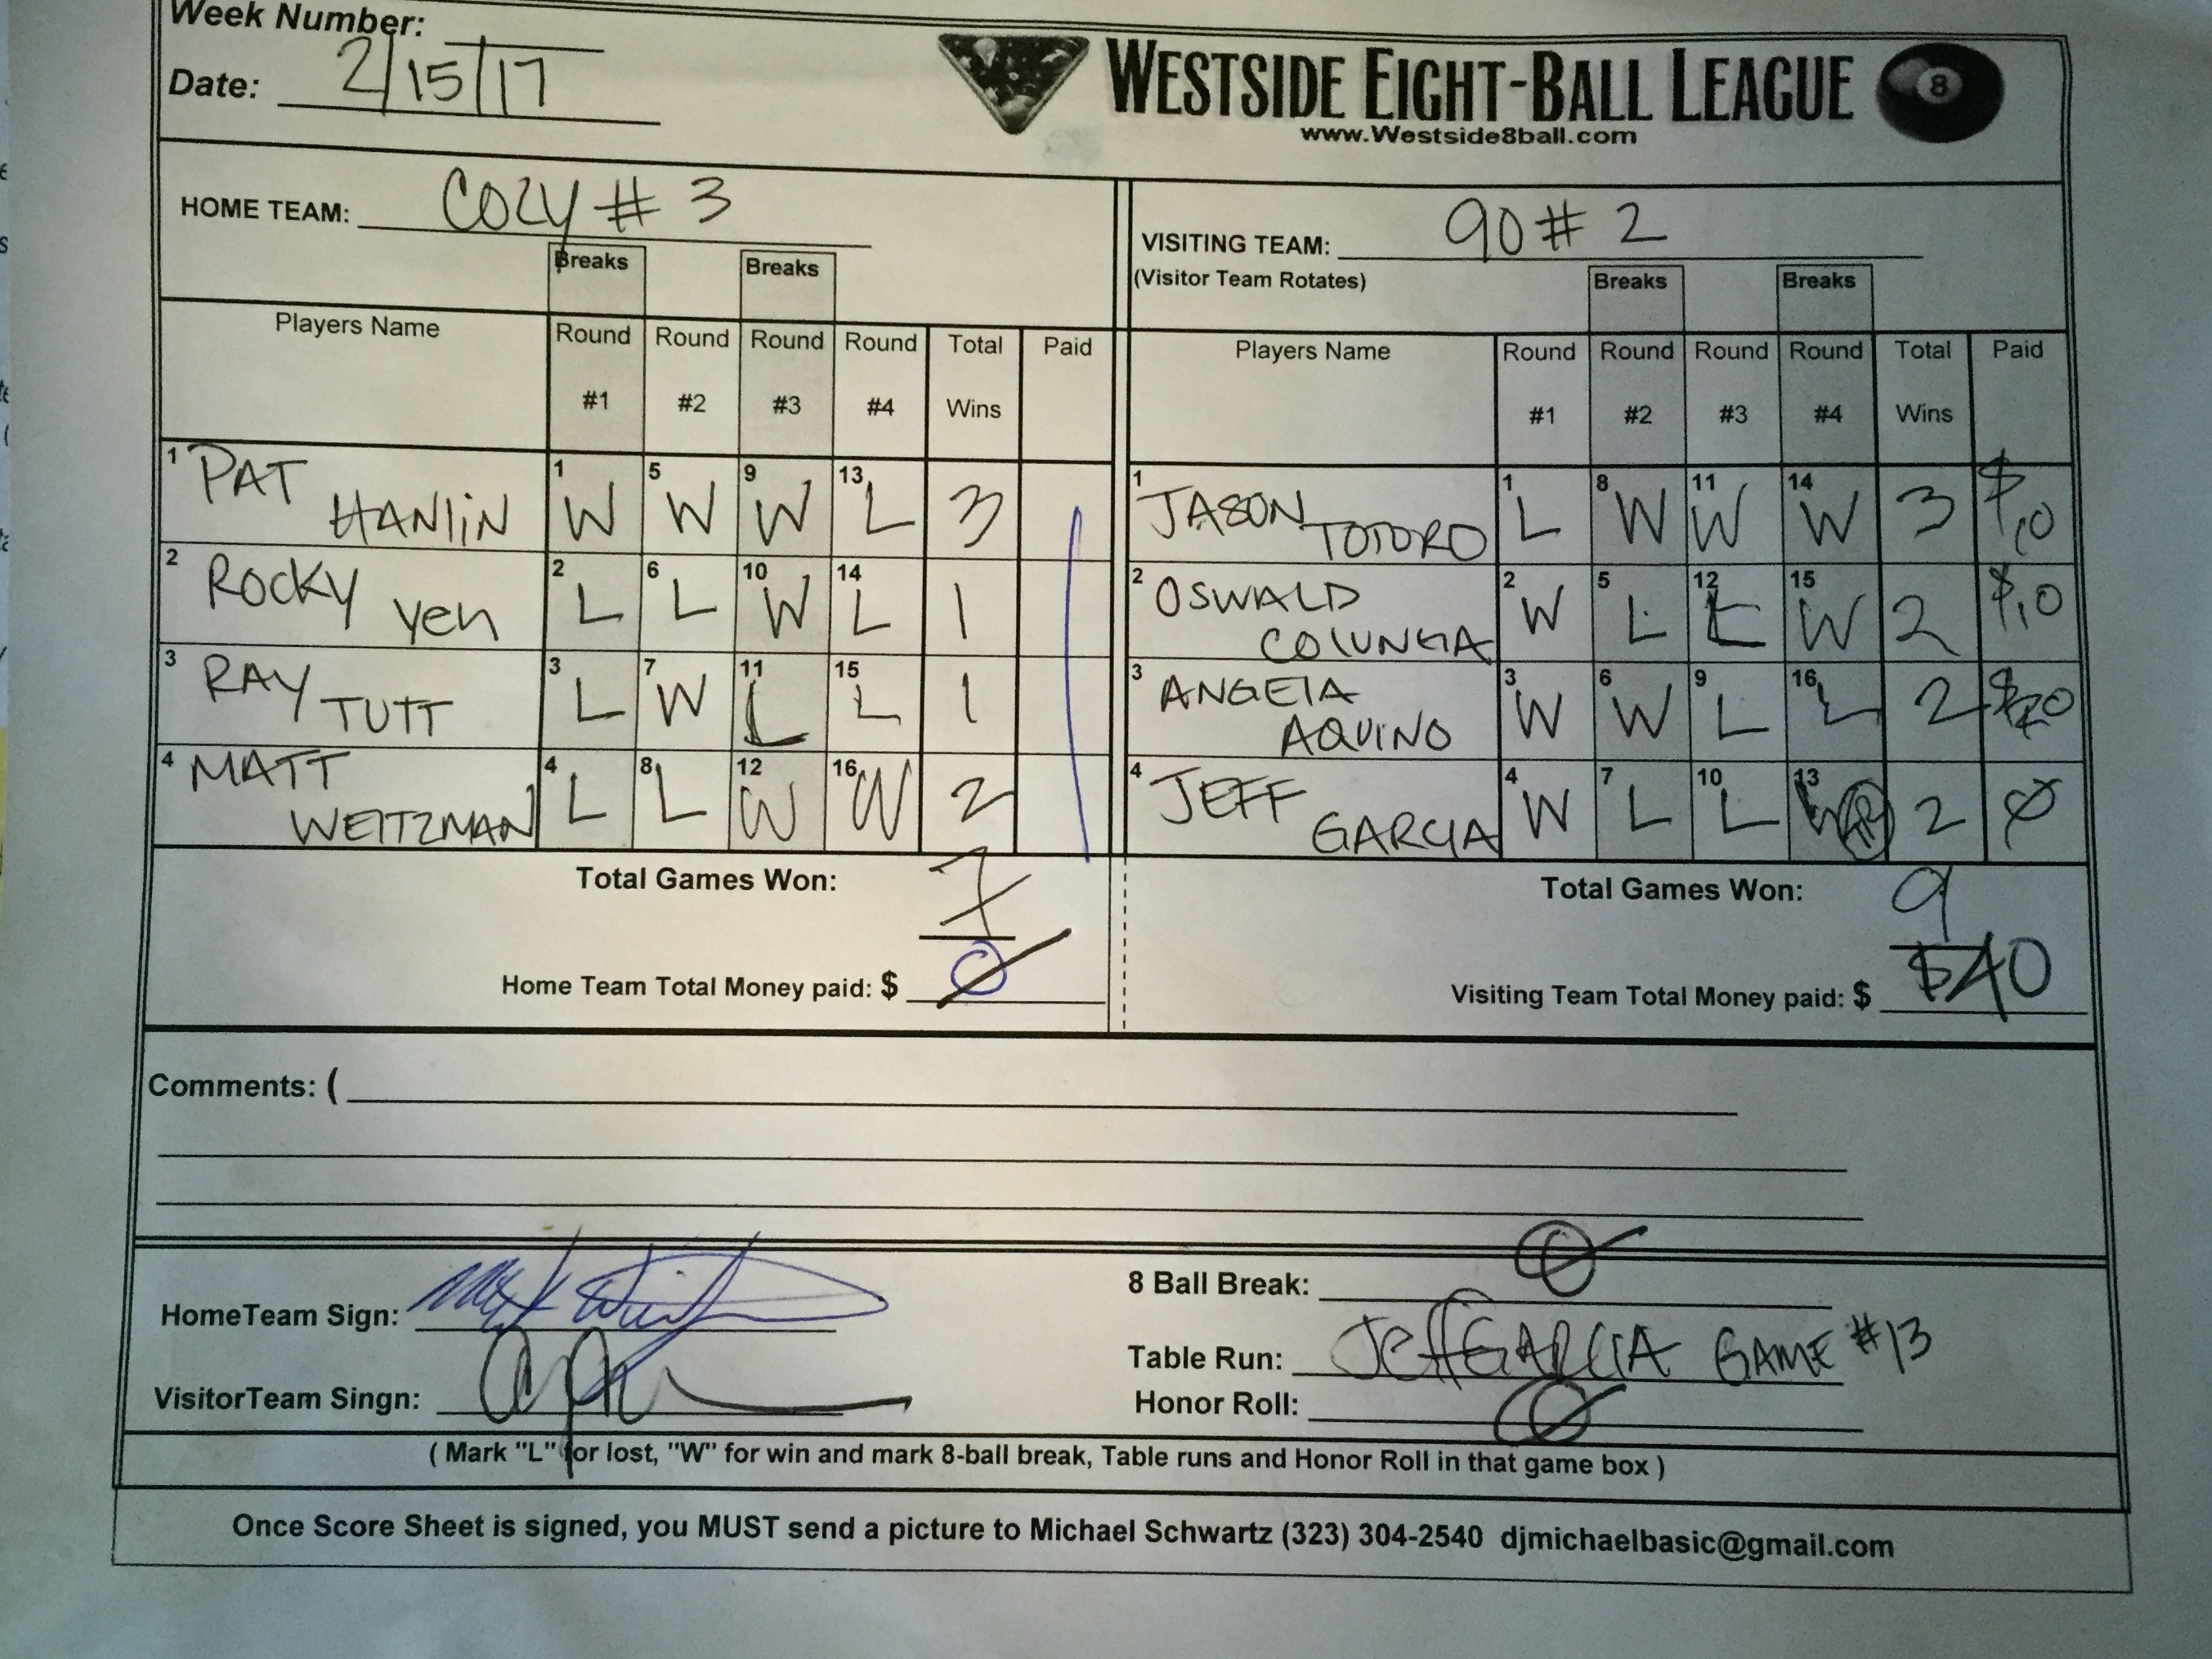 Week Number:
Date: 2/15/17
WESTSIDE EIGHT-BALL LEAGUE 8
www.Westside8ball.com
HOME TEAM: COZY # 3
VISITING TEAM: 90 # 2
(Visitor Team Rotates)
Breaks Breaks Breaks Breaks
Players Name Round #1 Round #2 Round #3 Round #4 Total Wins Paid
Players Name Round #1 Round #2 Round #3 Round #4 Total Wins Paid
1 PAT HANLIN 1 W 5 W 9 W 13 L 3
1 JASON TOTORO 1 L 8 W 11 W 14 W 3 $10
2 ROCKY Yeh 2 L 6 L 10 W 14 L 1
2 OSWALD COLUNGA 2 W 5 L 12 L 15 W 2 $10
3 RAY TUTT 3 L 7 W 11 L 15 L 1
3 ANGELA AQUINO 3 W 6 W 9 L 16 L 2 $20
4 MATT WEITZMAN 4 L 8 L 12 W 16 W 2
4 JEFF GARCIA 4 W 7 L 10 L 13 W TR 2 Ø
Total Games Won: 7
Total Games Won: 9
Home Team Total Money paid: $ Ø
Visiting Team Total Money paid: $ $40
Comments: (
HomeTeam Sign:
VisitorTeam Singn:
8 Ball Break: Ø
Table Run: Jeff GARCIA GAME #13
Honor Roll: Ø
( Mark "L" for lost, "W" for win and mark 8-ball break, Table runs and Honor Roll in that game box )
Once Score Sheet is signed, you MUST send a picture to Michael Schwartz (323) 304-2540 djmichaelbasic@gmail.com